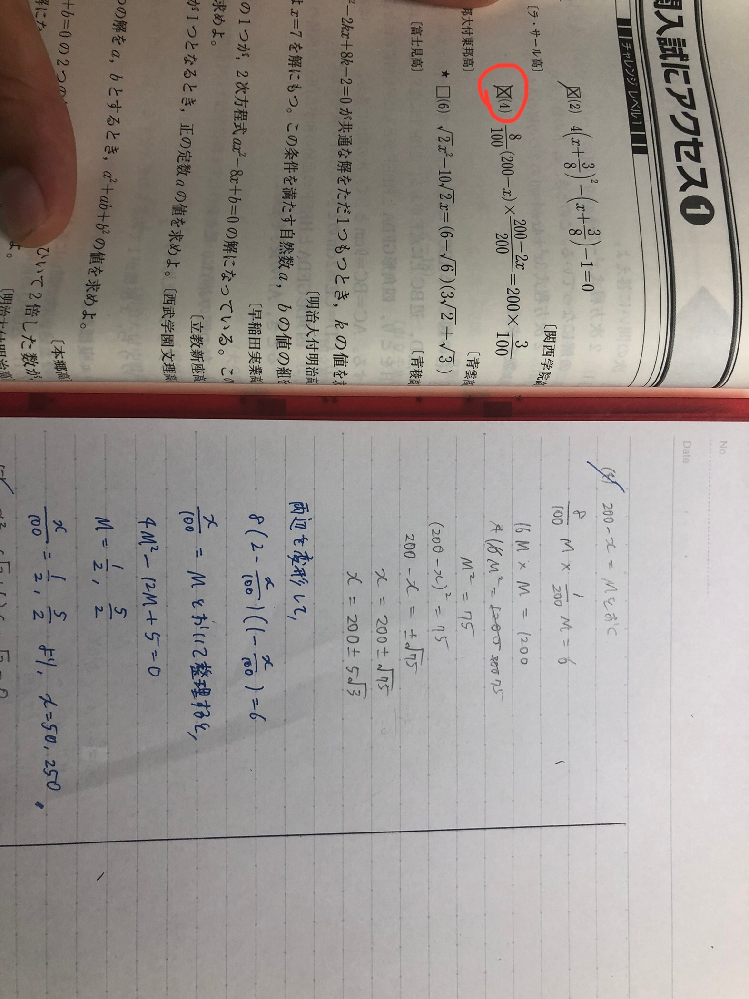 入試にアクセス❶
チャレンジ・レベル1
(2) 4(x+3/8)²-(x+3/8)-1=0
〔ラ・サール高〕
〔関西学院
(4) 8/100(200-x)×(200-2x)/200=200×3/100
部大付東邦高〕
★ □(6) √2x²-10√2x=(6-√6)(3√2+√3)
〔富士見高〕
〔青稜
²-2kx+8k-2=0が共通な解をただ1つもつとき,kの値を
〔明治大付明治高
x=7を解にもつ。この条件を満たす自然数a,bの値の組
〔早稲田実業高
の1つが,2次方程式ax²-8x+b=0の解になっている。この
求めよ。
〔立教新座高
が1つとなるとき,正の定数aの値を求めよ。〔西武学園文理高
つの解をa,bとするとき,a²+ab+b²の値を求めよ。
〔本郷高
+b=0の2つの
ていて2倍した数が
〔明治大付明治高
No.
Date
(4) 200-x=Mとおく
8/100 M × 1/200 M = 6
16M×M=1200
M²=75
(200-x)²=75
200-x=±√75
x=200±√75
x=200±5√3
両辺を変形して,
8(2-x/100)(1-x/100)=6
x/100=Mとおいて整理すると,
4M²-12M+5=0
M=1/2, 5/2
x/100=1/2, 5/2 より, x=50, 250.